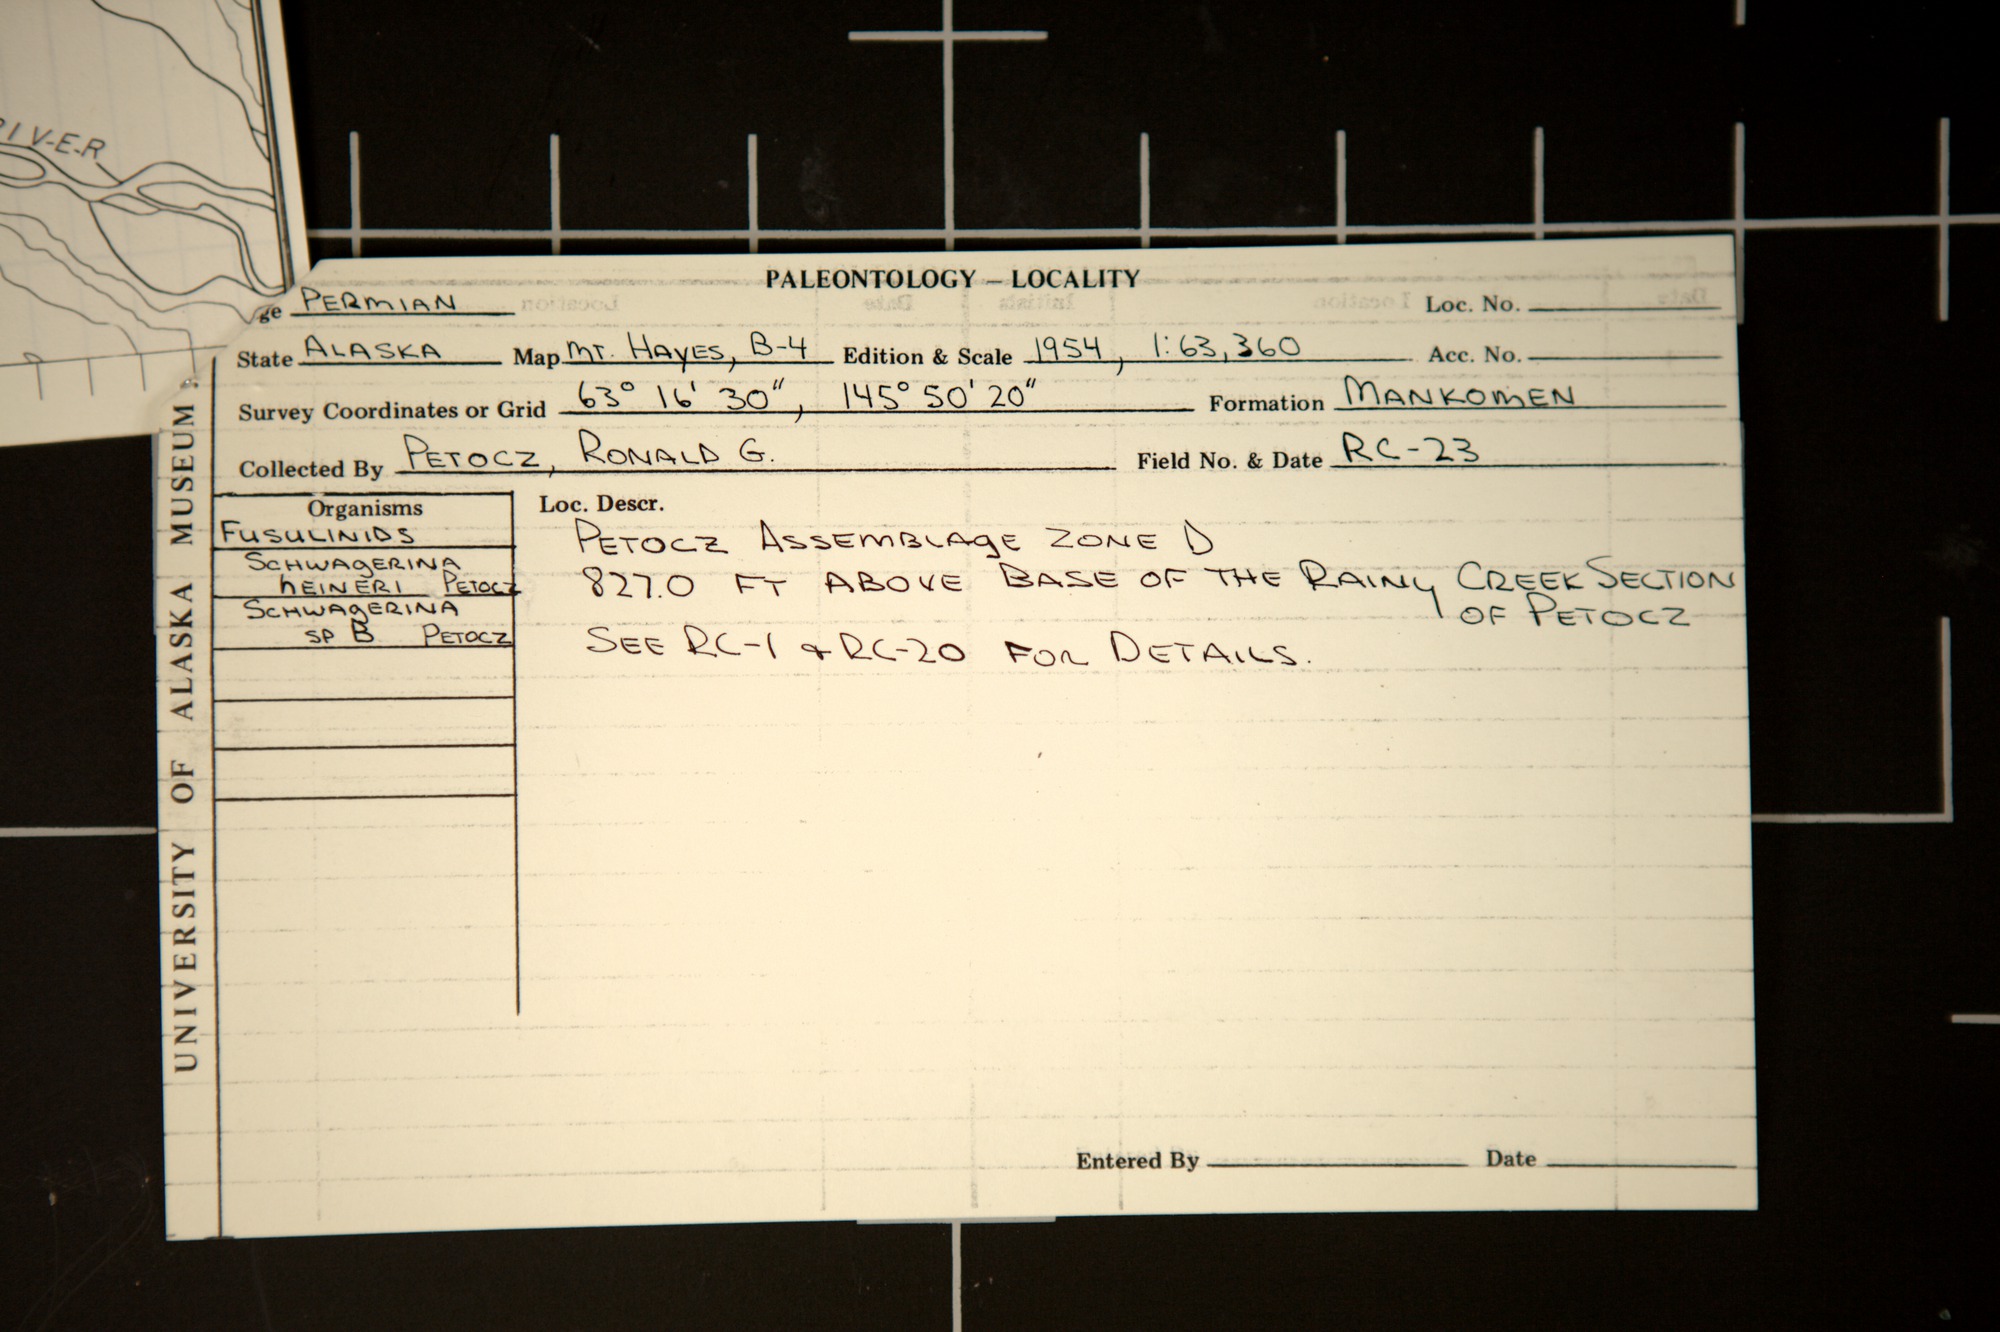 RIVER
PALEONTOLOGY – LOCALITY
ge PERMIAN
Loc. No.
State ALASKA Map MT. HAYES, B-4 Edition & Scale 1954, 1:63,360 Acc. No.
Survey Coordinates or Grid 63° 16' 30", 145° 50' 20" Formation MANKOMEN
Collected By PETOCZ, RONALD G. Field No. & Date RC-23
Organisms
FUSULINIDS
SCHWAGERINA
HEINERI PETOCZ
SCHWAGERINA
SP B PETOCZ
Loc. Descr.
PETOCZ ASSEMBLAGE ZONE D
827.0 FT ABOVE BASE OF THE RAINY CREEK SECTION
OF PETOCZ
SEE RC-1 & RC-20 FOR DETAILS.
Entered By Date
UNIVERSITY OF ALASKA MUSEUM